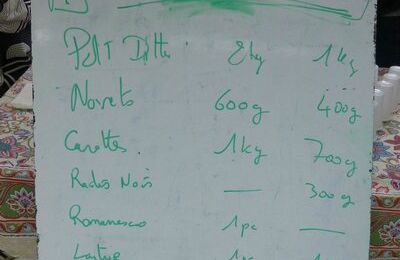 PDT 2kg 1kg
Navets 600g 400g
Carottes 1kg 700g
Radis Noirs — 300g
Romanesco 1pc —
Laitue 1pc